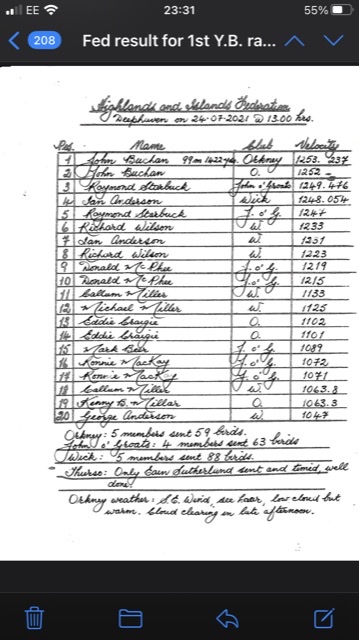 EE 23:31 55%
208 Fed result for 1st Y.B. ra...
Highlands and Islands Federation
Deephaven on 24-07-2021 @ 13.00 hrs.
Pos. Name Club Velocity
1 John Buchan 99m 1422yds. Orkney 1253.237
2 John Buchan O. 1252
3 Raymond Starbuck John o' Groats 1249.476
4 Ian Anderson Wick 1248.054
5 Raymond Starbuck J. o' G. 1247
6 Richard Wilson W. 1233
7 Ian Anderson W. 1231
8 Richard Wilson W. 1223
9 Donald McPhee J. o' G. 1219
10 Donald McPhee J. o' G. 1215
11 Callum Miller W. 1133
12 Michael Miller W. 1125
13 Eddie Craigie O. 1102
14 Eddie Craigie O. 1101
15 Mark Bell J. o' G. 1089
16 Ronnie MacKay J. o' G. 1072
17 Ronnie MacKay J. o' G. 1071
18 Callum Miller W. 1063.8
19 Kenny B. Millar O. 1063.3
20 George Anderson W. 1047
Orkney: 5 members sent 59 birds.
John o' Groats: 4 members sent 63 birds
Wick: 5 members sent 88 birds.
Thurso: Only Eain Sutherland sent and timed, well
done!
Orkney weather: S.E. Wind, sea haar, low cloud but
warm. Cloud clearing in late afternoon.